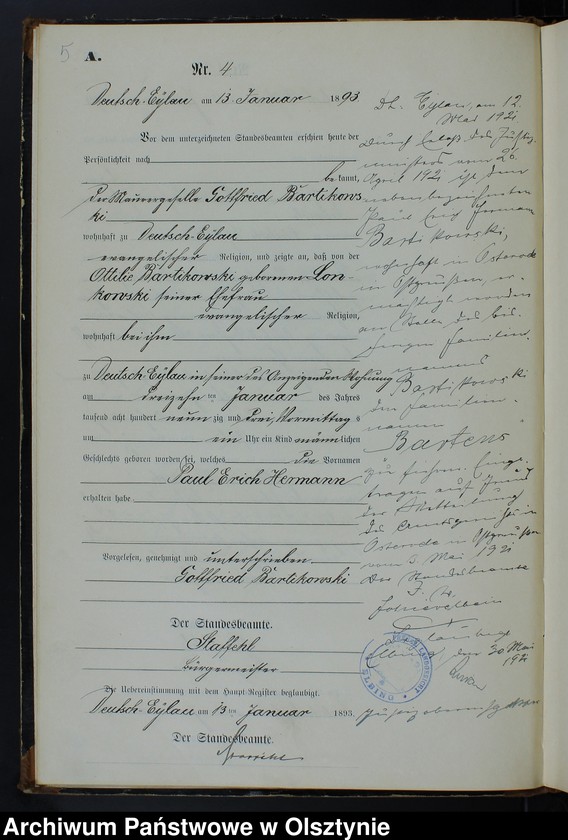 5
A.
Nr. 4
Deutsch-Eylau am 13 Januar 1893
Vor dem unterzeichneten Standesbeamten erschien heute der
Persönlichkeit nach
bekannt,
der Maurergeselle Gottfried Bartikows
ki
wohnhaft zu Deutsch-Eylau
evangelischer Religion, und zeigte an, daß von der
Ottilie Bartikowski geborenen Lon-
kowski seiner Ehefrau
evangelischer Religion,
wohnhaft bei ihm
zu Deutsch-Eylau in seiner des Anzeigenden Wohnung
am dreizehn ten Januar des Jahres
tausend acht hundert neun zig und drei Vormittag s
um ein Uhr ein Kind männlichen
Geschlechts geboren worden sei, welches die Vornamen
Paul Erich Hermann
erhalten habe
Vorgelesen, genehmigt und unterschrieben
Gottfried Bartikowski
Der Standesbeamte.
Staffehl
Bürgermeister
Die Uebereinstimmung mit dem Haupt-Register beglaubigt.
Deutsch-Eylau am 13ten Januar 1893.
Der Standesbeamte.
Dt. Eylau, am 12.
Mai 1921
Durch Erlaß des Justiz-
ministers vom 26.
April 1921 ist dem
nebenbezeichneten
Paul Erich Hermann
Bartikowski,
wohnhaft in Osterode
in Ostpreußen, er-
mächtigt worden
an Stelle des bis-
herigen Familien-
namens
Bartikowski
den Familien-
namen
"Bartens"
zu führen. Einge-
tragen auf Grund
der Mitteilung
des Amtsgerichts in
Osterode in Ostpreußen
vom 3 Mai 1921
Der Standesbeamte
Elbing, den 30 Mai
1921
ELBING
Archiwum Państwowe w Olsztynie